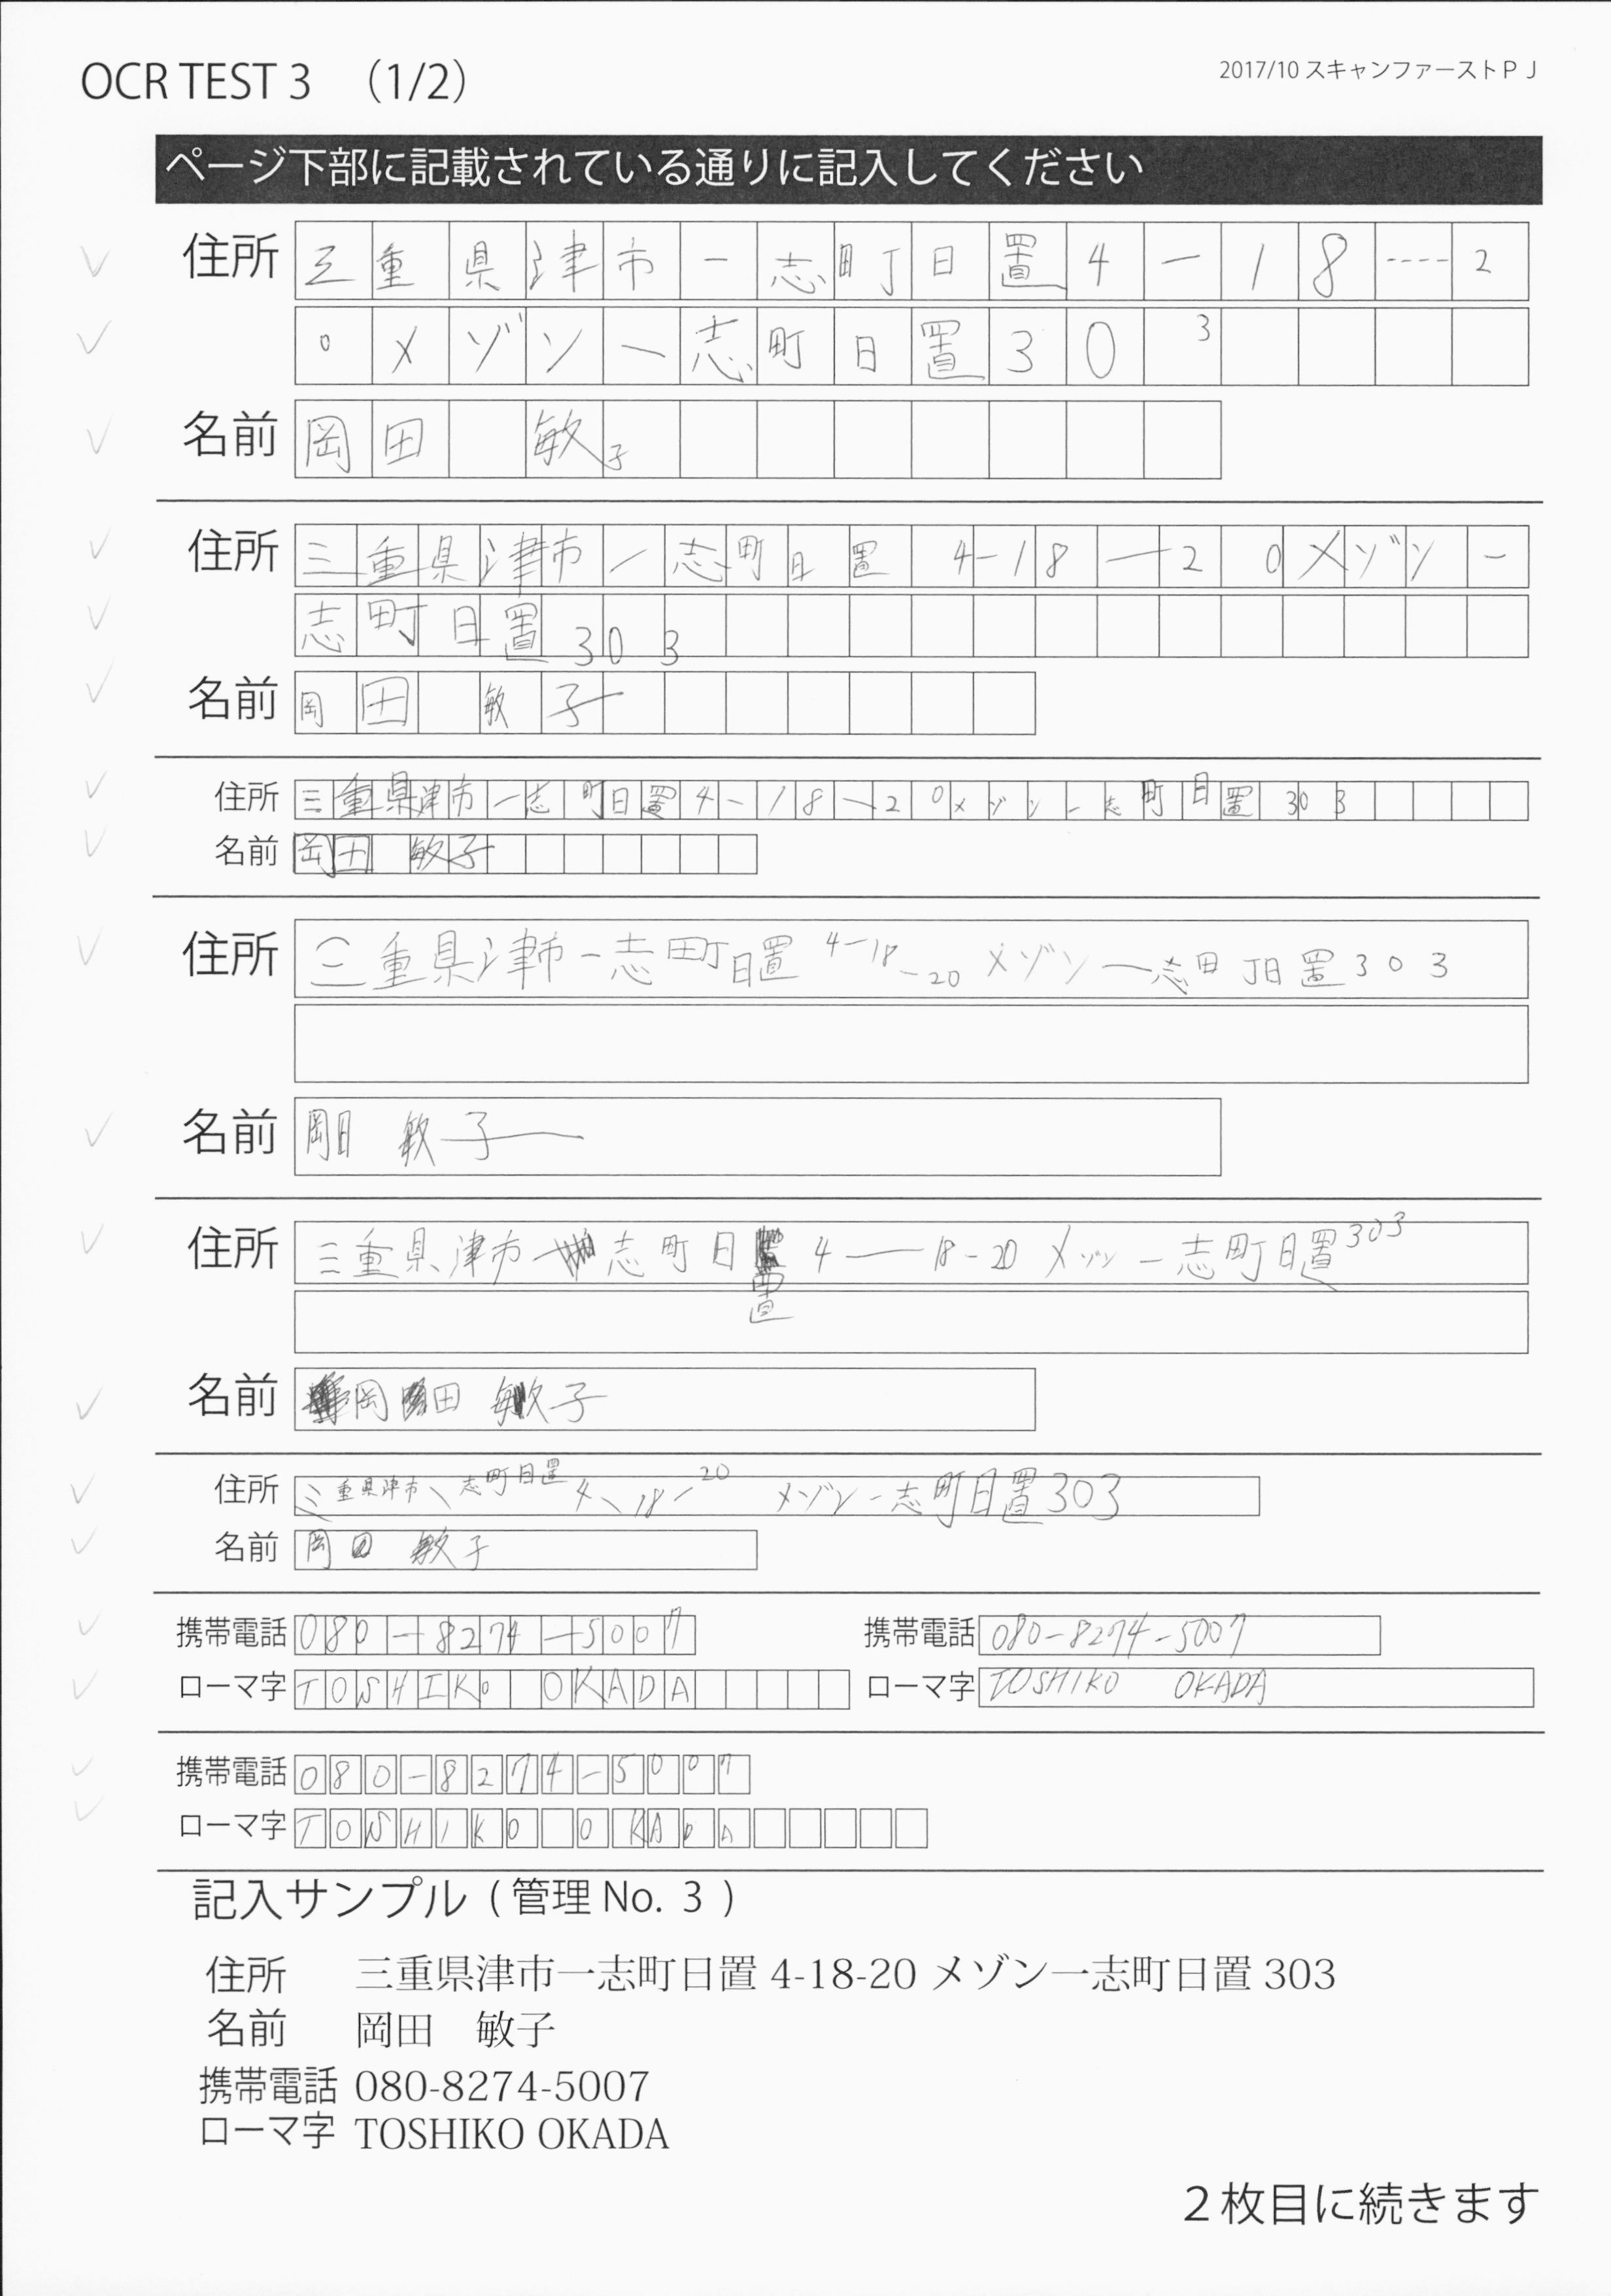 OCR TEST 3 （1/2）
2017/10 スキャンファーストＰＪ
ページ下部に記載されている通りに記入してください
住所 三重県津市一志町日置4-18-2
0メゾン一志町日置303
名前 岡田 敏子
住所 三重県津市一志町日置4-18-20メゾン一
志町日置303
名前 岡田 敏子
住所 三重県津市一志町日置4-18-20メゾン一志町日置303
名前 岡田 敏子
住所 三重県津市一志町日置4-18-20メゾン一志町日置303
名前 岡田 敏子
住所 三重県津市一志町日置4-18-20メゾン一志町日置303
名前 岡田 敏子
住所 三重県津市一志町日置4-18-20 メゾン一志町日置303
名前 岡田 敏子
携帯電話 080-8274-5007 携帯電話 080-8274-5007
ローマ字 TOSHIKO OKADA ローマ字 TOSHIKO OKADA
携帯電話 080-8274-5007
ローマ字 TOSHIKO OKADA
記入サンプル（管理 No. 3 ）
住所 三重県津市一志町日置 4-18-20 メゾン一志町日置 303
名前 岡田 敏子
携帯電話 080-8274-5007
ローマ字 TOSHIKO OKADA
２枚目に続きます